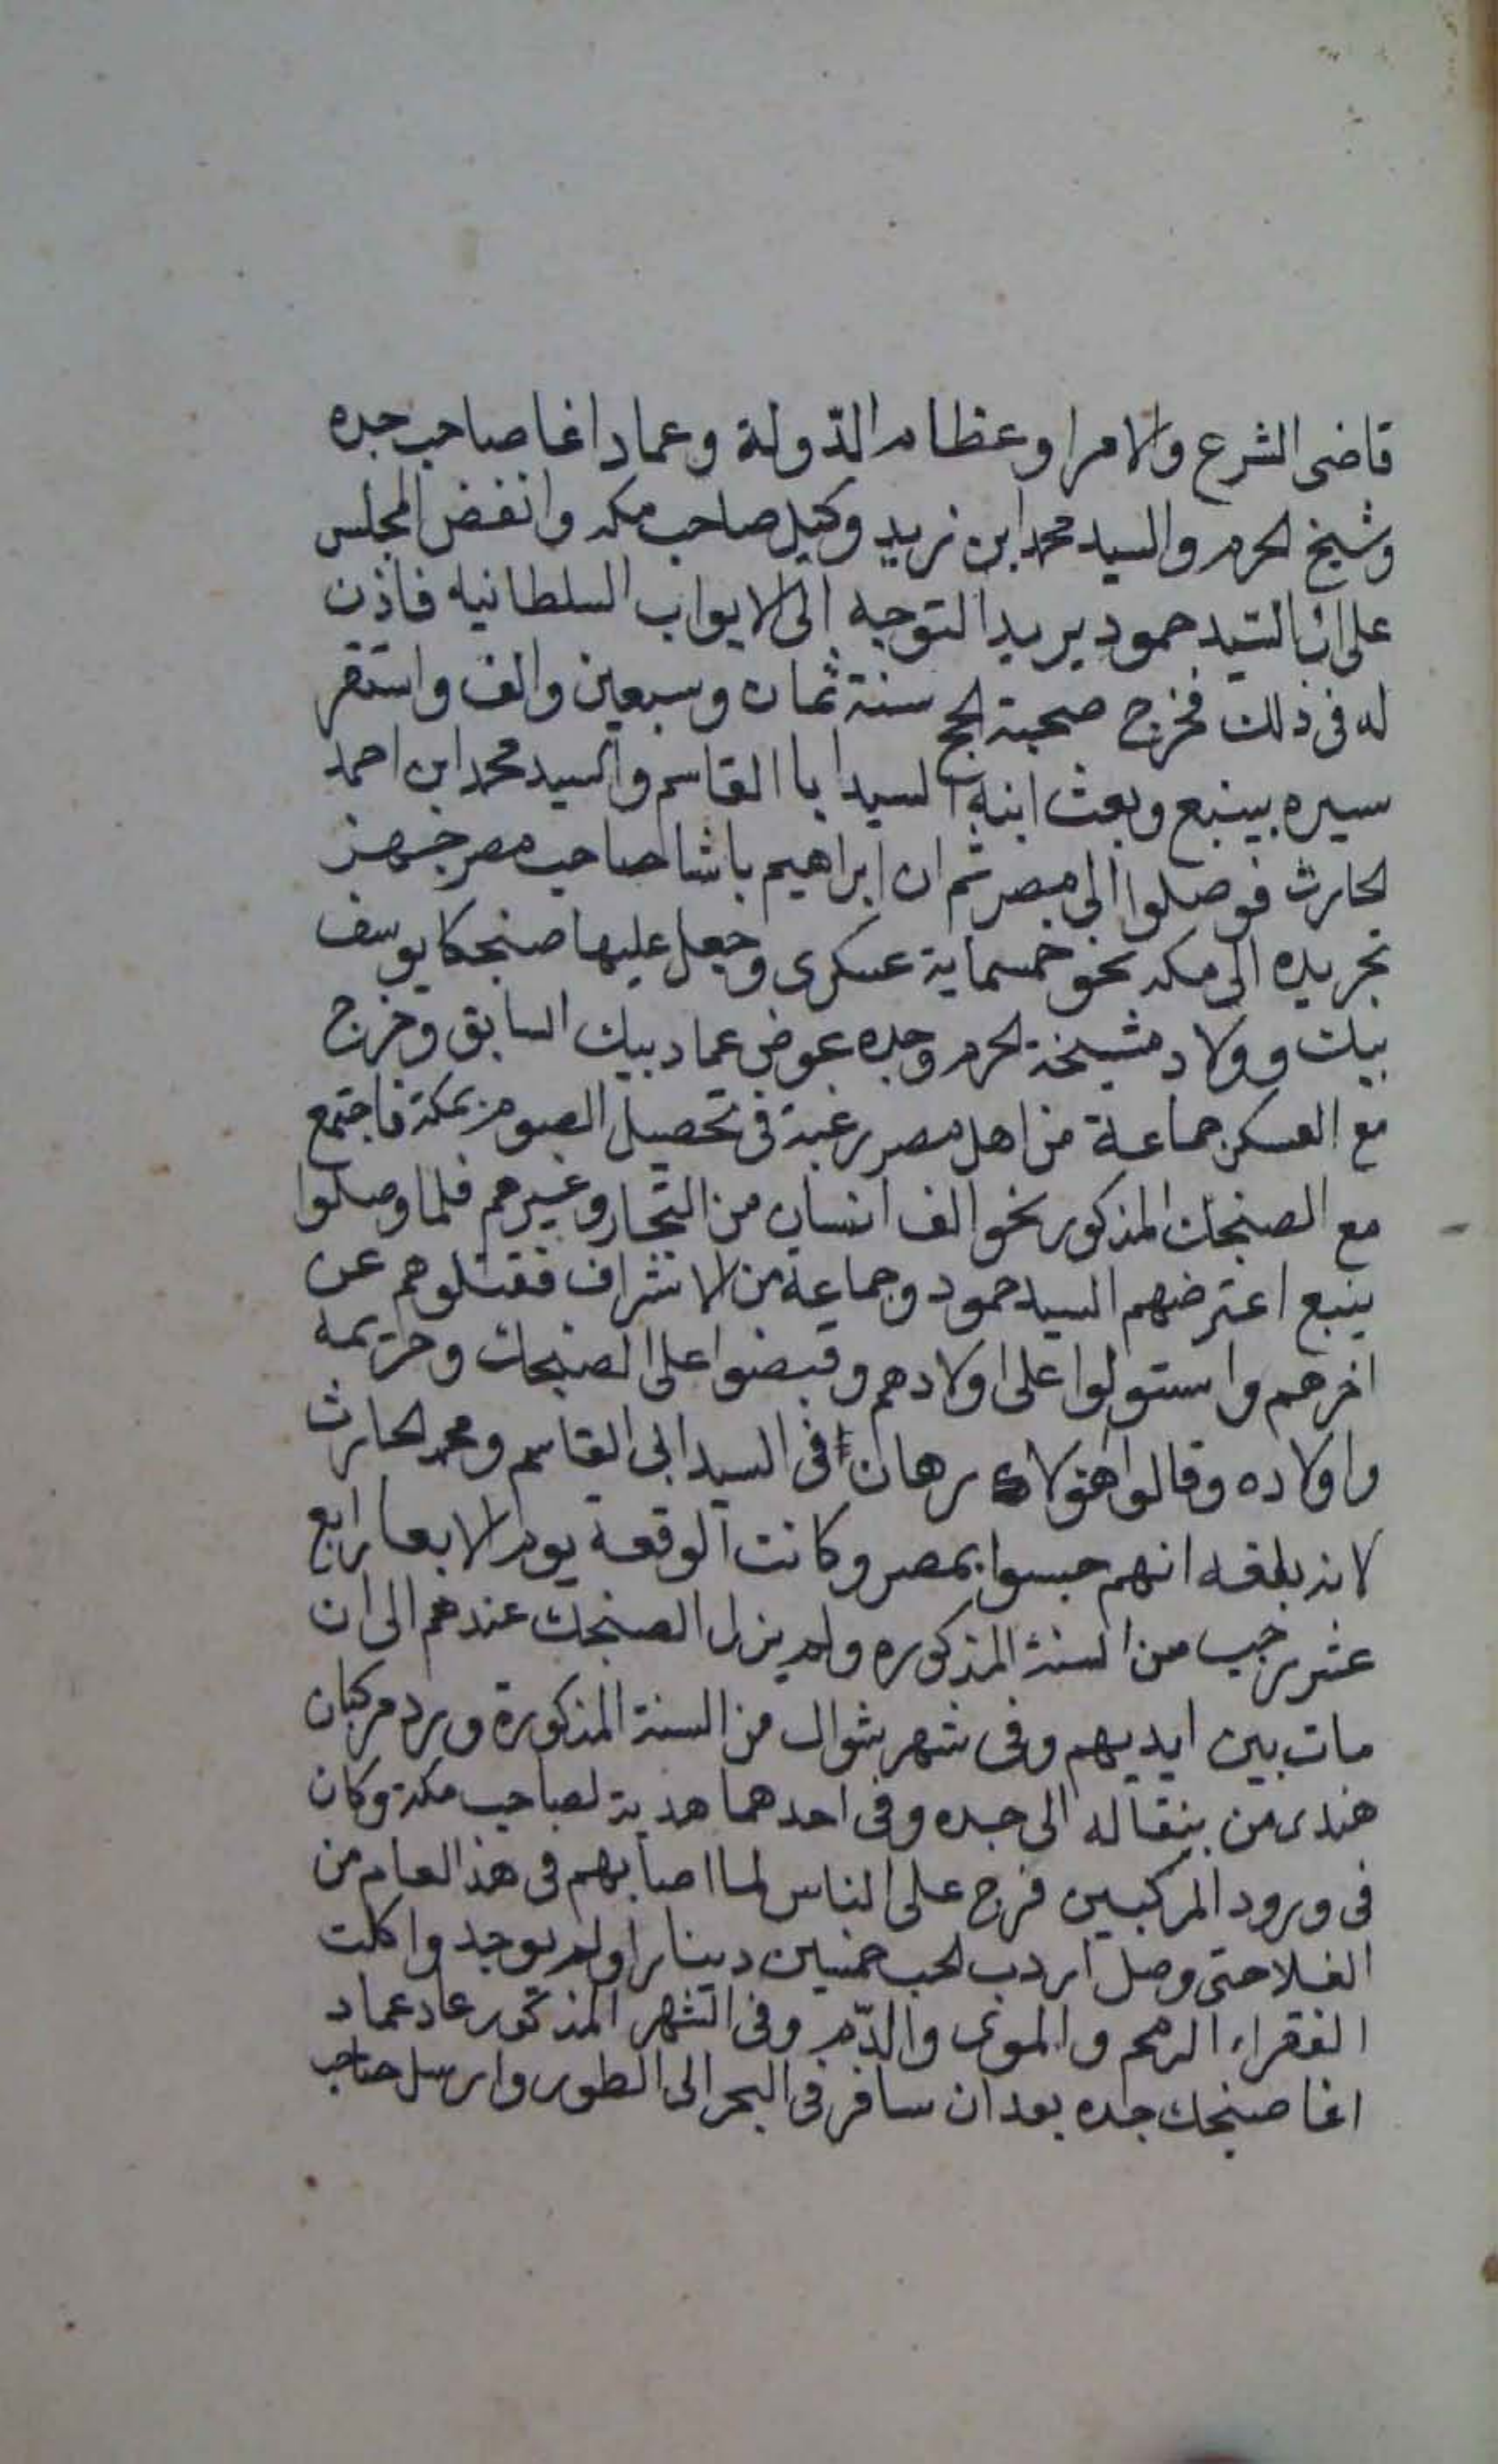 قاضى الشرع والامرا وعظام الدّولة وعماد اغا صاحب جده
وشيخ الحرم والسيد محمد ابن زيد وكيل صاحب مكه وانفض المجلس
على ان السّيد حمود يريد التوجه الى الابواب السلطانيه فاذن
له فى ذلك فخرج صحبة الحج سنة ثمان وسبعين والف واستقر
سيره بينبع وبعث ابنه السيد ابا القاسم والسيد محمد ابن احمد
الحارث فوصلوا الى مصر ثم ان ابراهيم باشا صاحب مصر جهز
تجريده الى مكه نحو خمسماية عسكرى وجعل عليها صنجكا يوسف
بيك وولاه مشيخة الحرم وجده عوض عماد بيك السابق وخرج
مع العسكر جماعة من اهل مصر رغبة فى تحصيل الصوم بمكة فاجتمع
مع الصنجك المذكور نحو الف انسان من التجار وغيرهم فلما وصلوا
ينبع اعترضهم السيد حمود وجماعة من الاشراف فقتلوهم عن
اخرهم واستولوا على اولادهم وقبضوا على الصنجك وحريمه
واولاده وقالوا هؤلاء رهان فى السيد ابى القاسم ومحمد الحارث
لانه بلغه انهم حبسوا بمصر وكانت الوقعة يوم الاربعا رابع
عشر رجب من السنة المذكوره ولم يزل الصنجك عندهم الى ان
مات بين ايديهم وفى شهر شوال من السنة المذكورة ورد مركبان
هندى من بنقاله الى جده وفى احدهما هدية لصاحب مكة وكان
فى ورود المركبين فرج على الناس لما اصابهم فى هذ العام من
الغلا حتى وصل اردب الحب خمسين دينارا ولم يوجد واكلت
الفقراء الرمم والموتى والدّم وفى الشهر المذكور عاد عماد
اغا صنجك جده بعد ان سافر فى البحر الى الطور وارسل صاحب